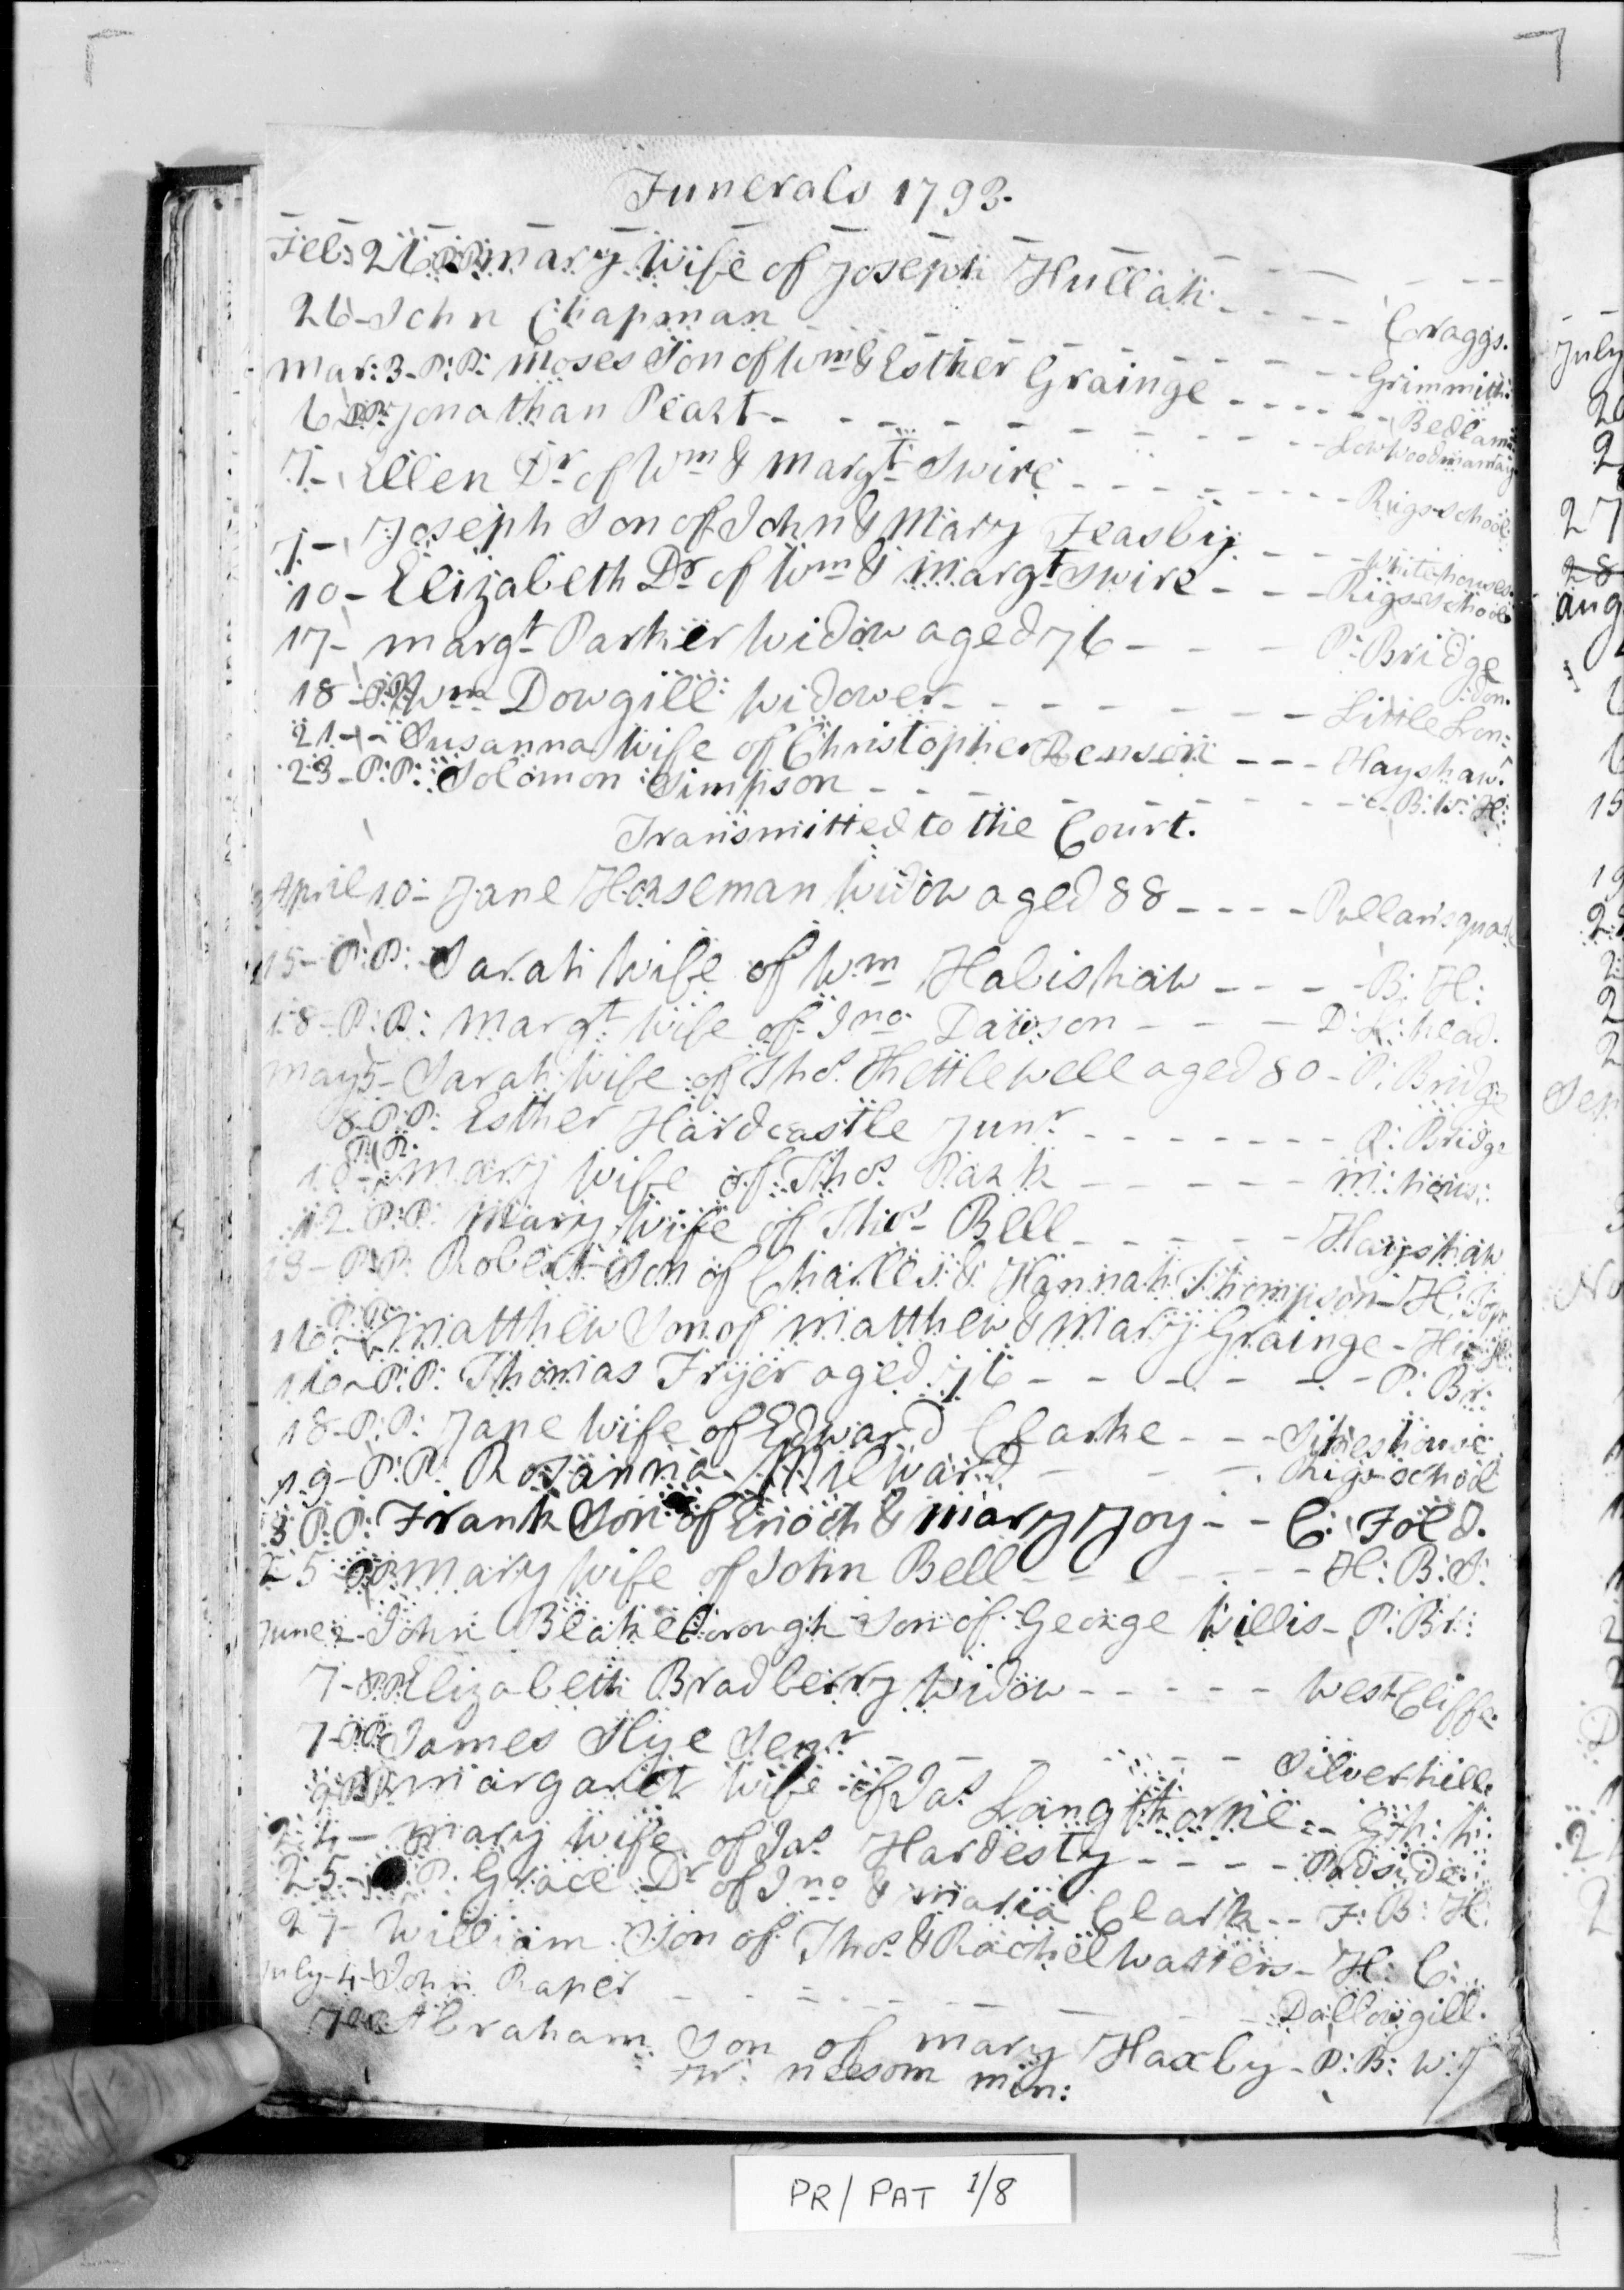 Funerals 1793.
Feb: 26 P:P: Mary Wife of Joseph Hullah - - - - Craggs.
26 - John Chapman - - - - Grimmith:
Mar: 3 - P:P: Moses Son of Wm & Esther Grainge - - - - Bedlam
6 - P:P: Jonathan Peart - - - - Low Woodmanwray
7 - Ellen Dr of Wm & Margt Swire - - - - Rigs-School
7 - Joseph Son of John & Mary Feasby - - - Whitehouses
10 - Elizabeth Dr of Wm & Margt Swire - - - Rigs-School
17 - Margt Parker Widow aged 76 - - - P: Bridge
18 - P:P: Wm Dowgill Widower - - - - Little Lon: :don.
21 - - Susanna Wife of Christopher Benson - - - Hayshaw
23 - P:P: Solomon Simpson - - - - B: W: H:
Transmitted to the Court.
April 10 - Jane Horseman Widow aged 88 - - - - Pullans
15 - P:P: Sarah Wife of Wm Habishaw - - - - B: H:
18 - P:P: Margt Wife of Jno Dawson - - - D: L: head.
May 5 - Sarah Wife of Thos Kettlewell aged 80 - P: Bridge
8 - P:P: Esther Hardcastle Junr - - - - P: Bridge
10 - P:P: Mary Wife of Thos Park - - - - M: hous:
12 P:P: Mary Wife of Thos Bell - - - - Hayshaw
13 - P:P: Robert Son of Charles & Hannah Thompson - H: Top
16 - P:P: Matthew Son of Matthew & Mary Grainge -
16 - P:P: Thomas Fryer aged 76 - - - - P: Br:
18 - P:P: Jane Wife of Edward Clarke - - - Sikeshouse
19 - P:P: Rosanna Milward - - - Rigs-School
P:P: Frank Son of Enoch & Mary Joy - - C: Fold.
25 P:P: Mary Wife of John Bell - - - - H: B: S:
June 2 - John Blakeborough Son of George Willis - P: Br:
7 - P:P: Elizabeth Bradberry Widow - - - - West Cliffe.
7 - P:P: James Slye Senr - - - - Silverhill
9 P:P: Margaret Wife of Jas Langthorne - -
24 - Mary Wife of Jas Hardesty - - - - Padside.
25 - P. Grace Dr of Jno & Maria Clark - - F: B: H:
27 - William Son of Thos & Rachel Watters - H: C:
July 4 - John Raper - - - - Dallowgill.
7 P:P: Abraham Son of Mary Haxby - P: B: W:
Neesom Min:
PR/PAT 1/8
July
2
27
28
Aug
15
19